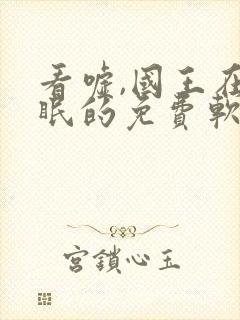 看嘘,國王在
眠的免費軟
宮鎖心玉